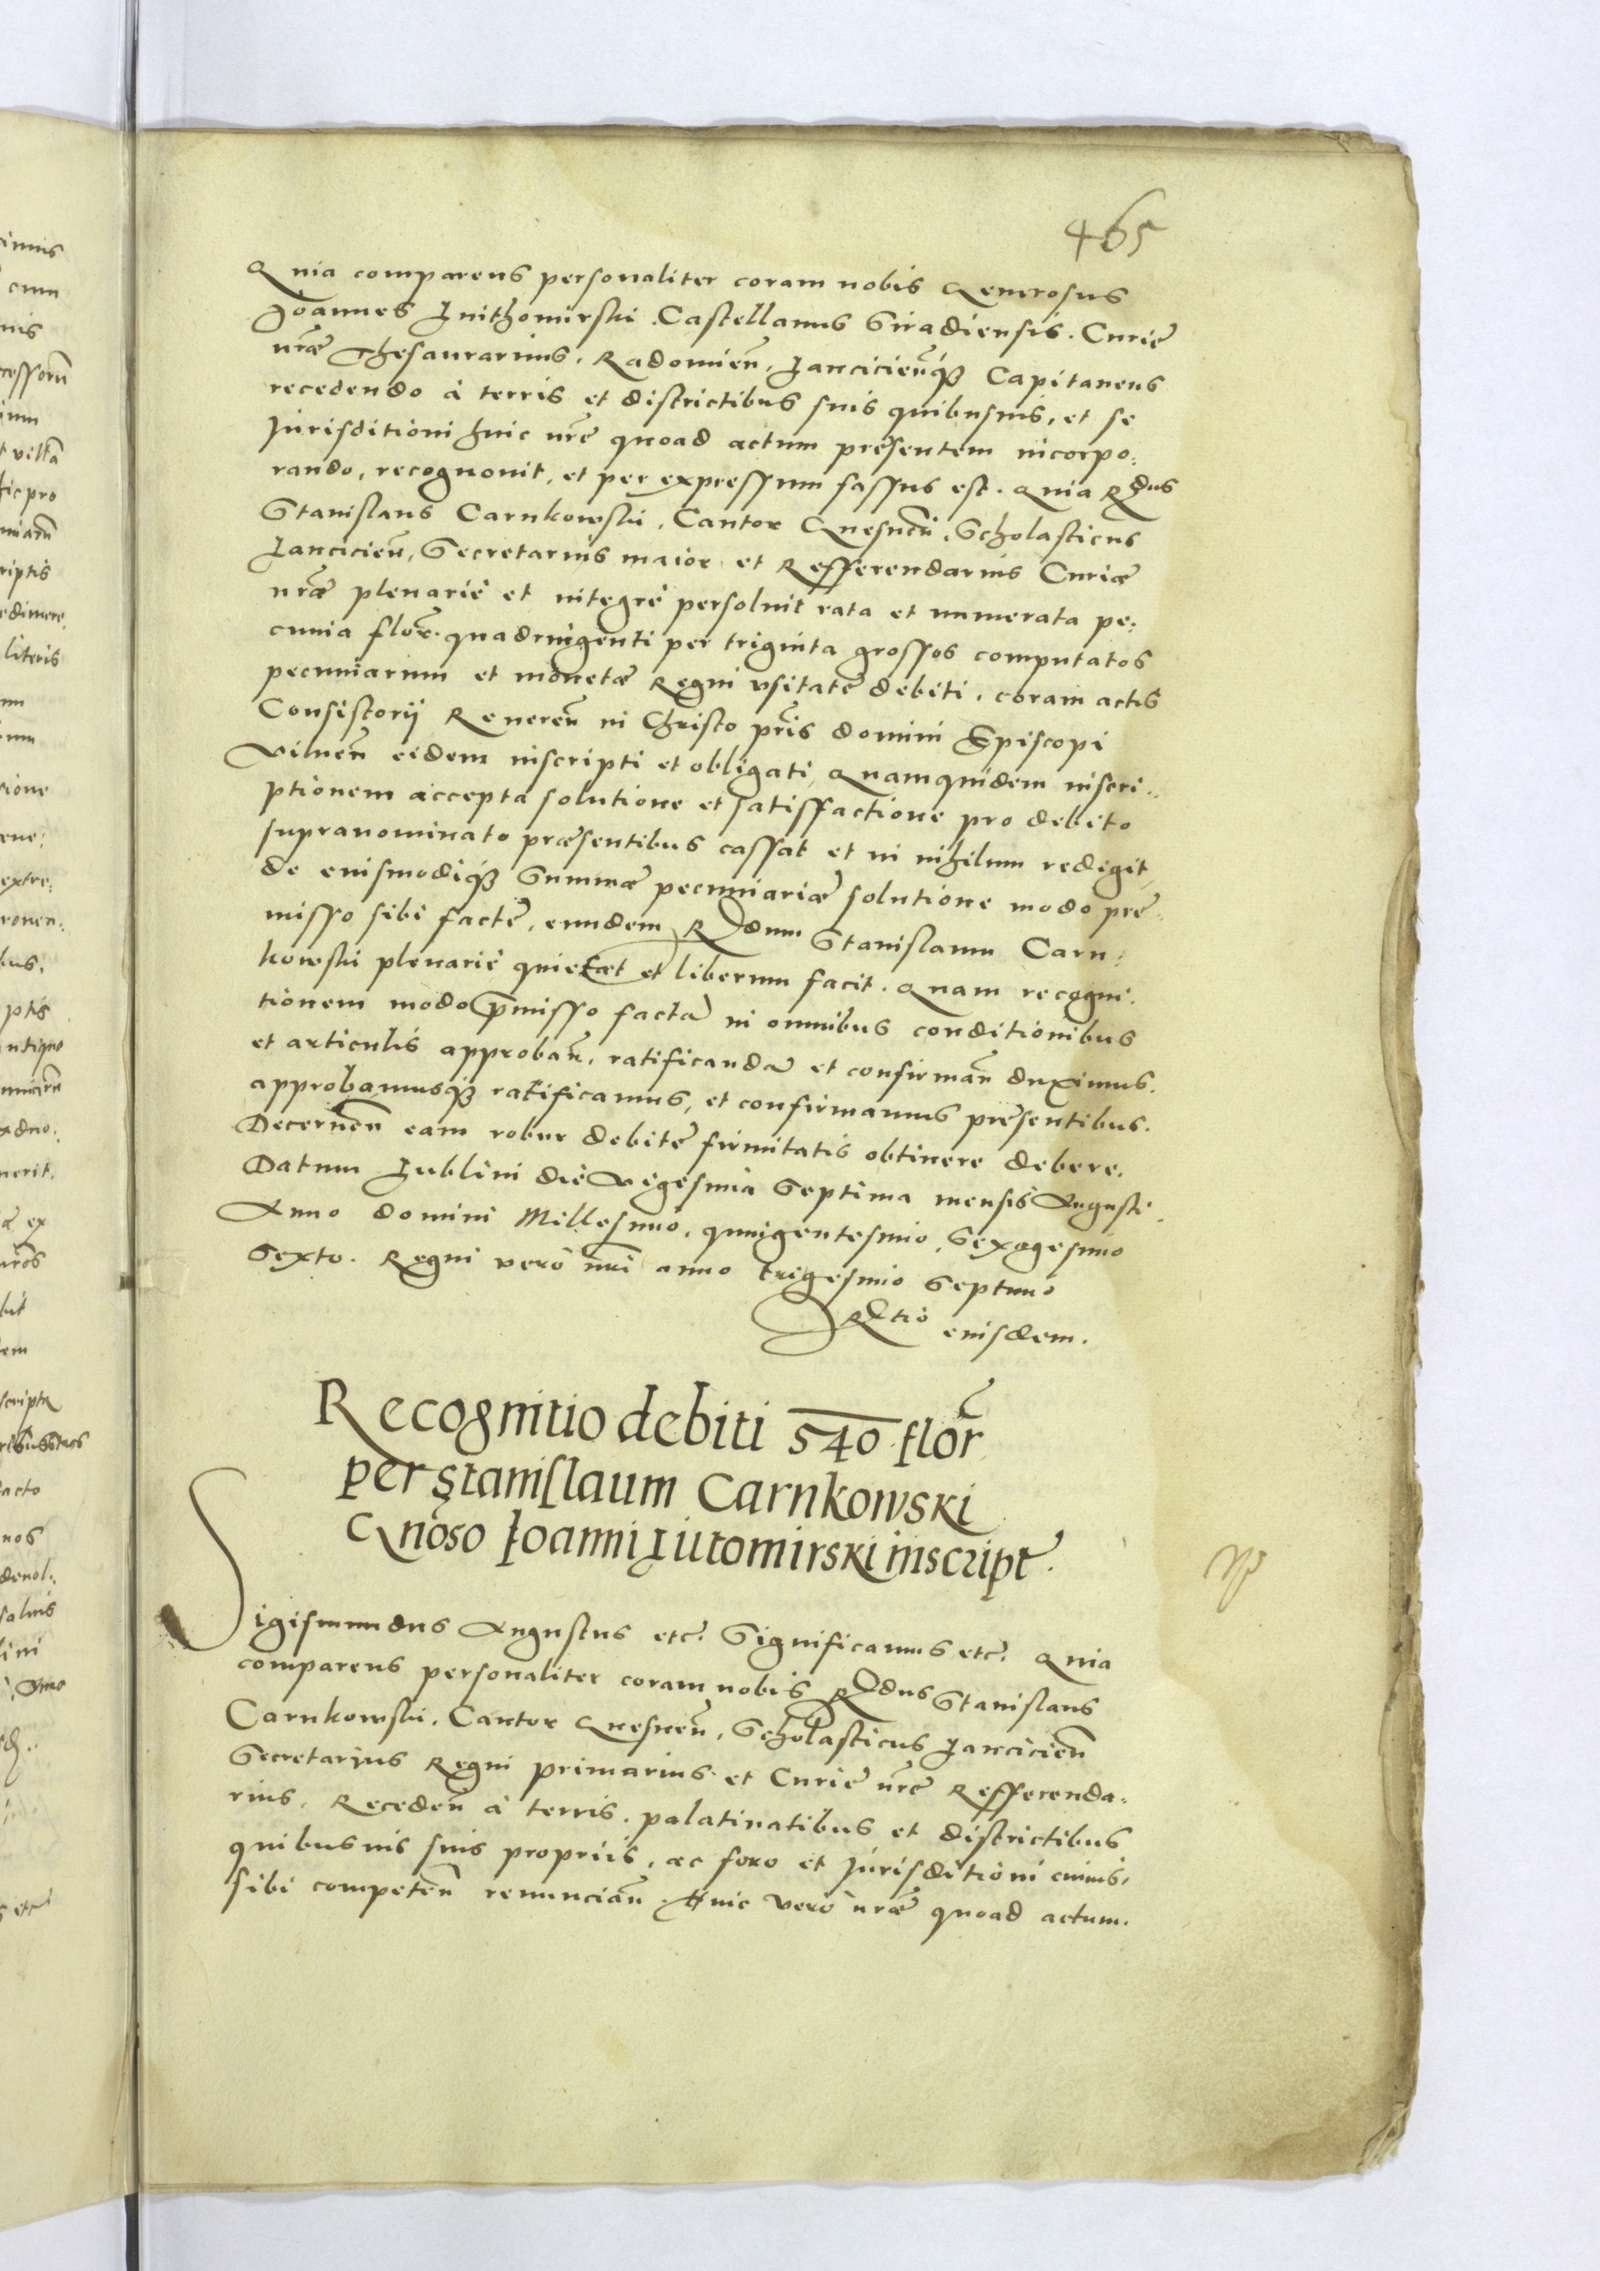 465
Quia comparens personaliter coram nobis Generosus
Joannes Luthomirski. Castellanus Siradiensis. Curię
nr̃æ Thesaurarius. Radomieñ. Lancicieñq₃ Capitaneus
recedendo à terris et districtibus suis quibusuis, et se
Jurisditioni huic nr̃ę quoad actum pręsentem incorpo:
rando, recognouit, et per expressum fassus est. Quia R̃dus
Stanislaus Carnkowski. Cantor Gnesneñ. Scholasticus
Lancicieñ, Secretarius maior et Refferendarius Curiæ
nr̃æ plenariè et integrè persoluit rata et numerata pe:
cunia floẽr. quadringenti per triginta grossos computatos
pecuniarum et monetæ Regni vsitatę debiti. coram actis
Consistorij Revereñ in Christo pr̃is domini Episcopi
Vilneñ eidem inscripti et obligati, Quamquidem inscri:
ptionem accepta solutione et satisffactione pro debito
supranominato præsentibus cassat et in nihilum redigit,
de euismodiq₃ Summæ pecuniariæ solutione modo prę:
misso sibi factę, eundem R̃dum Stanislaum Carn:
kowski plenariè quietat et liberum facit. Quam recogni:
tionem modo p̃misso factã in omnibus conditionibus
et articulis approbañ. ratificandã et confirmañ duximus.
approbamusq₃ ratificamus, et confirmamus pręsentibus.
Decerneñ eam robur debitę firmitatis obtinere debere.
Datum Lublini die Vigesima Septima mensis Augusti.
Anno domini Millesimo, quingentesimo, Sexagesimo
Sexto. Regni verò nr̃i anno trigesimo Septimo
R̃tio eiusdem.
Recognitio debiti 540 flor̃
per Stanislaum Carnkowski
Gnõso Joanni Lutomirski inscript.
Sigismundus Augustus etc. Significamus etc. Quia
comparens personaliter coram nobis R̃dus Stanislaus
Carnkowski. Cantor Gnesneñ, Scholasticus Lancicieñ
Secretarius Regni primarius et Curiæ nr̃ę Refferenda:
rius. Recedeñ à terris. palatinatibus et districtibus
quibusuis suis proprijs. ac foro et Jurisditioni cuiuis.
sibi competeñ renunciañ. Huic verò nr̃æ quoad actum.